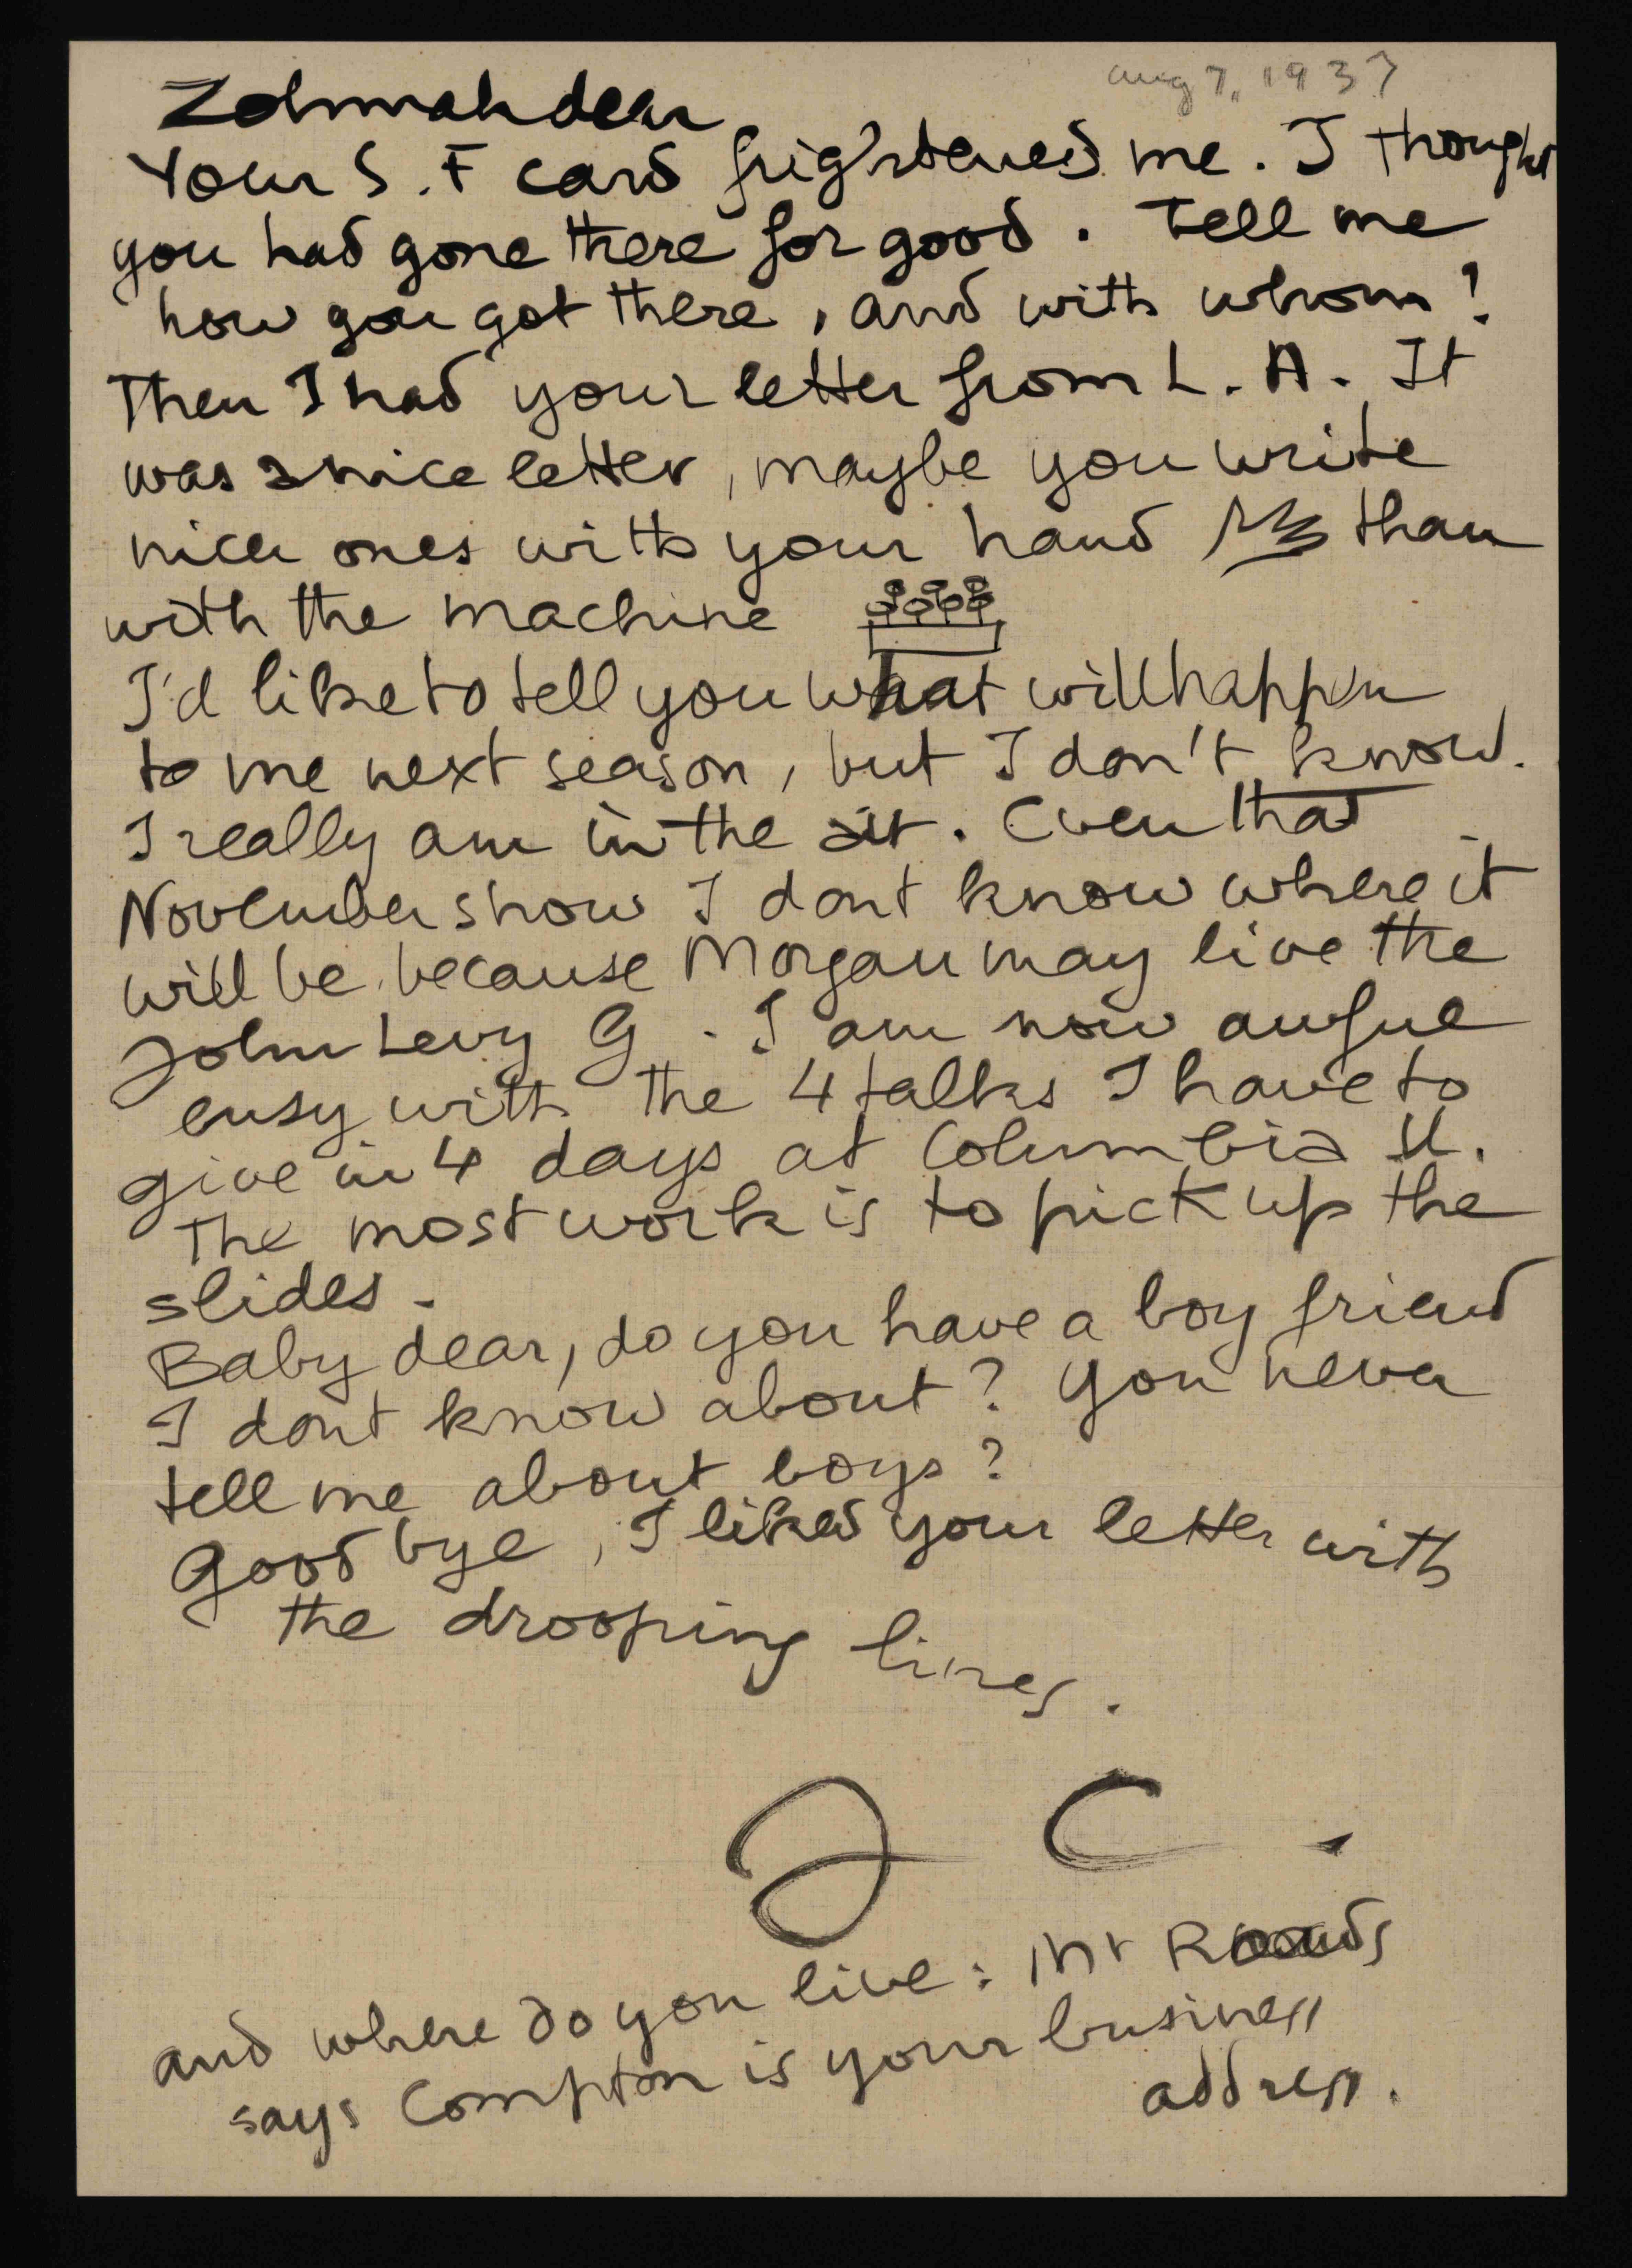 aug 7, 1937
Zohmah dear
Your S. F card frightened me. I thought
you had gone there for good. Tell me
how you got there, and with whom!
Then I had your letter from L. A. It
was a nice letter, maybe you write
nicer ones with your hand than
with the machine
I'd like to tell you what will happen
to me next season, but I don't know.
I really am in the air. Even that
November show I dont know where it
will be, because Morgan may live the
John Levy G. I am now awful
busy with the 4 talks I have to
give in 4 days at Columbia U.
The most work is to pick up the
slides.
Baby dear, do you have a boy friend
I dont know about? You never
tell me about boys?
Good bye, I liked your letter with
the drooping lines.
J C.
and where do you live: Mr
says Compton is your business
address.